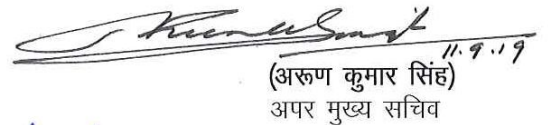 11.9.19
(अरूण कुमार सिंह)
अपर मुख्य सचिव